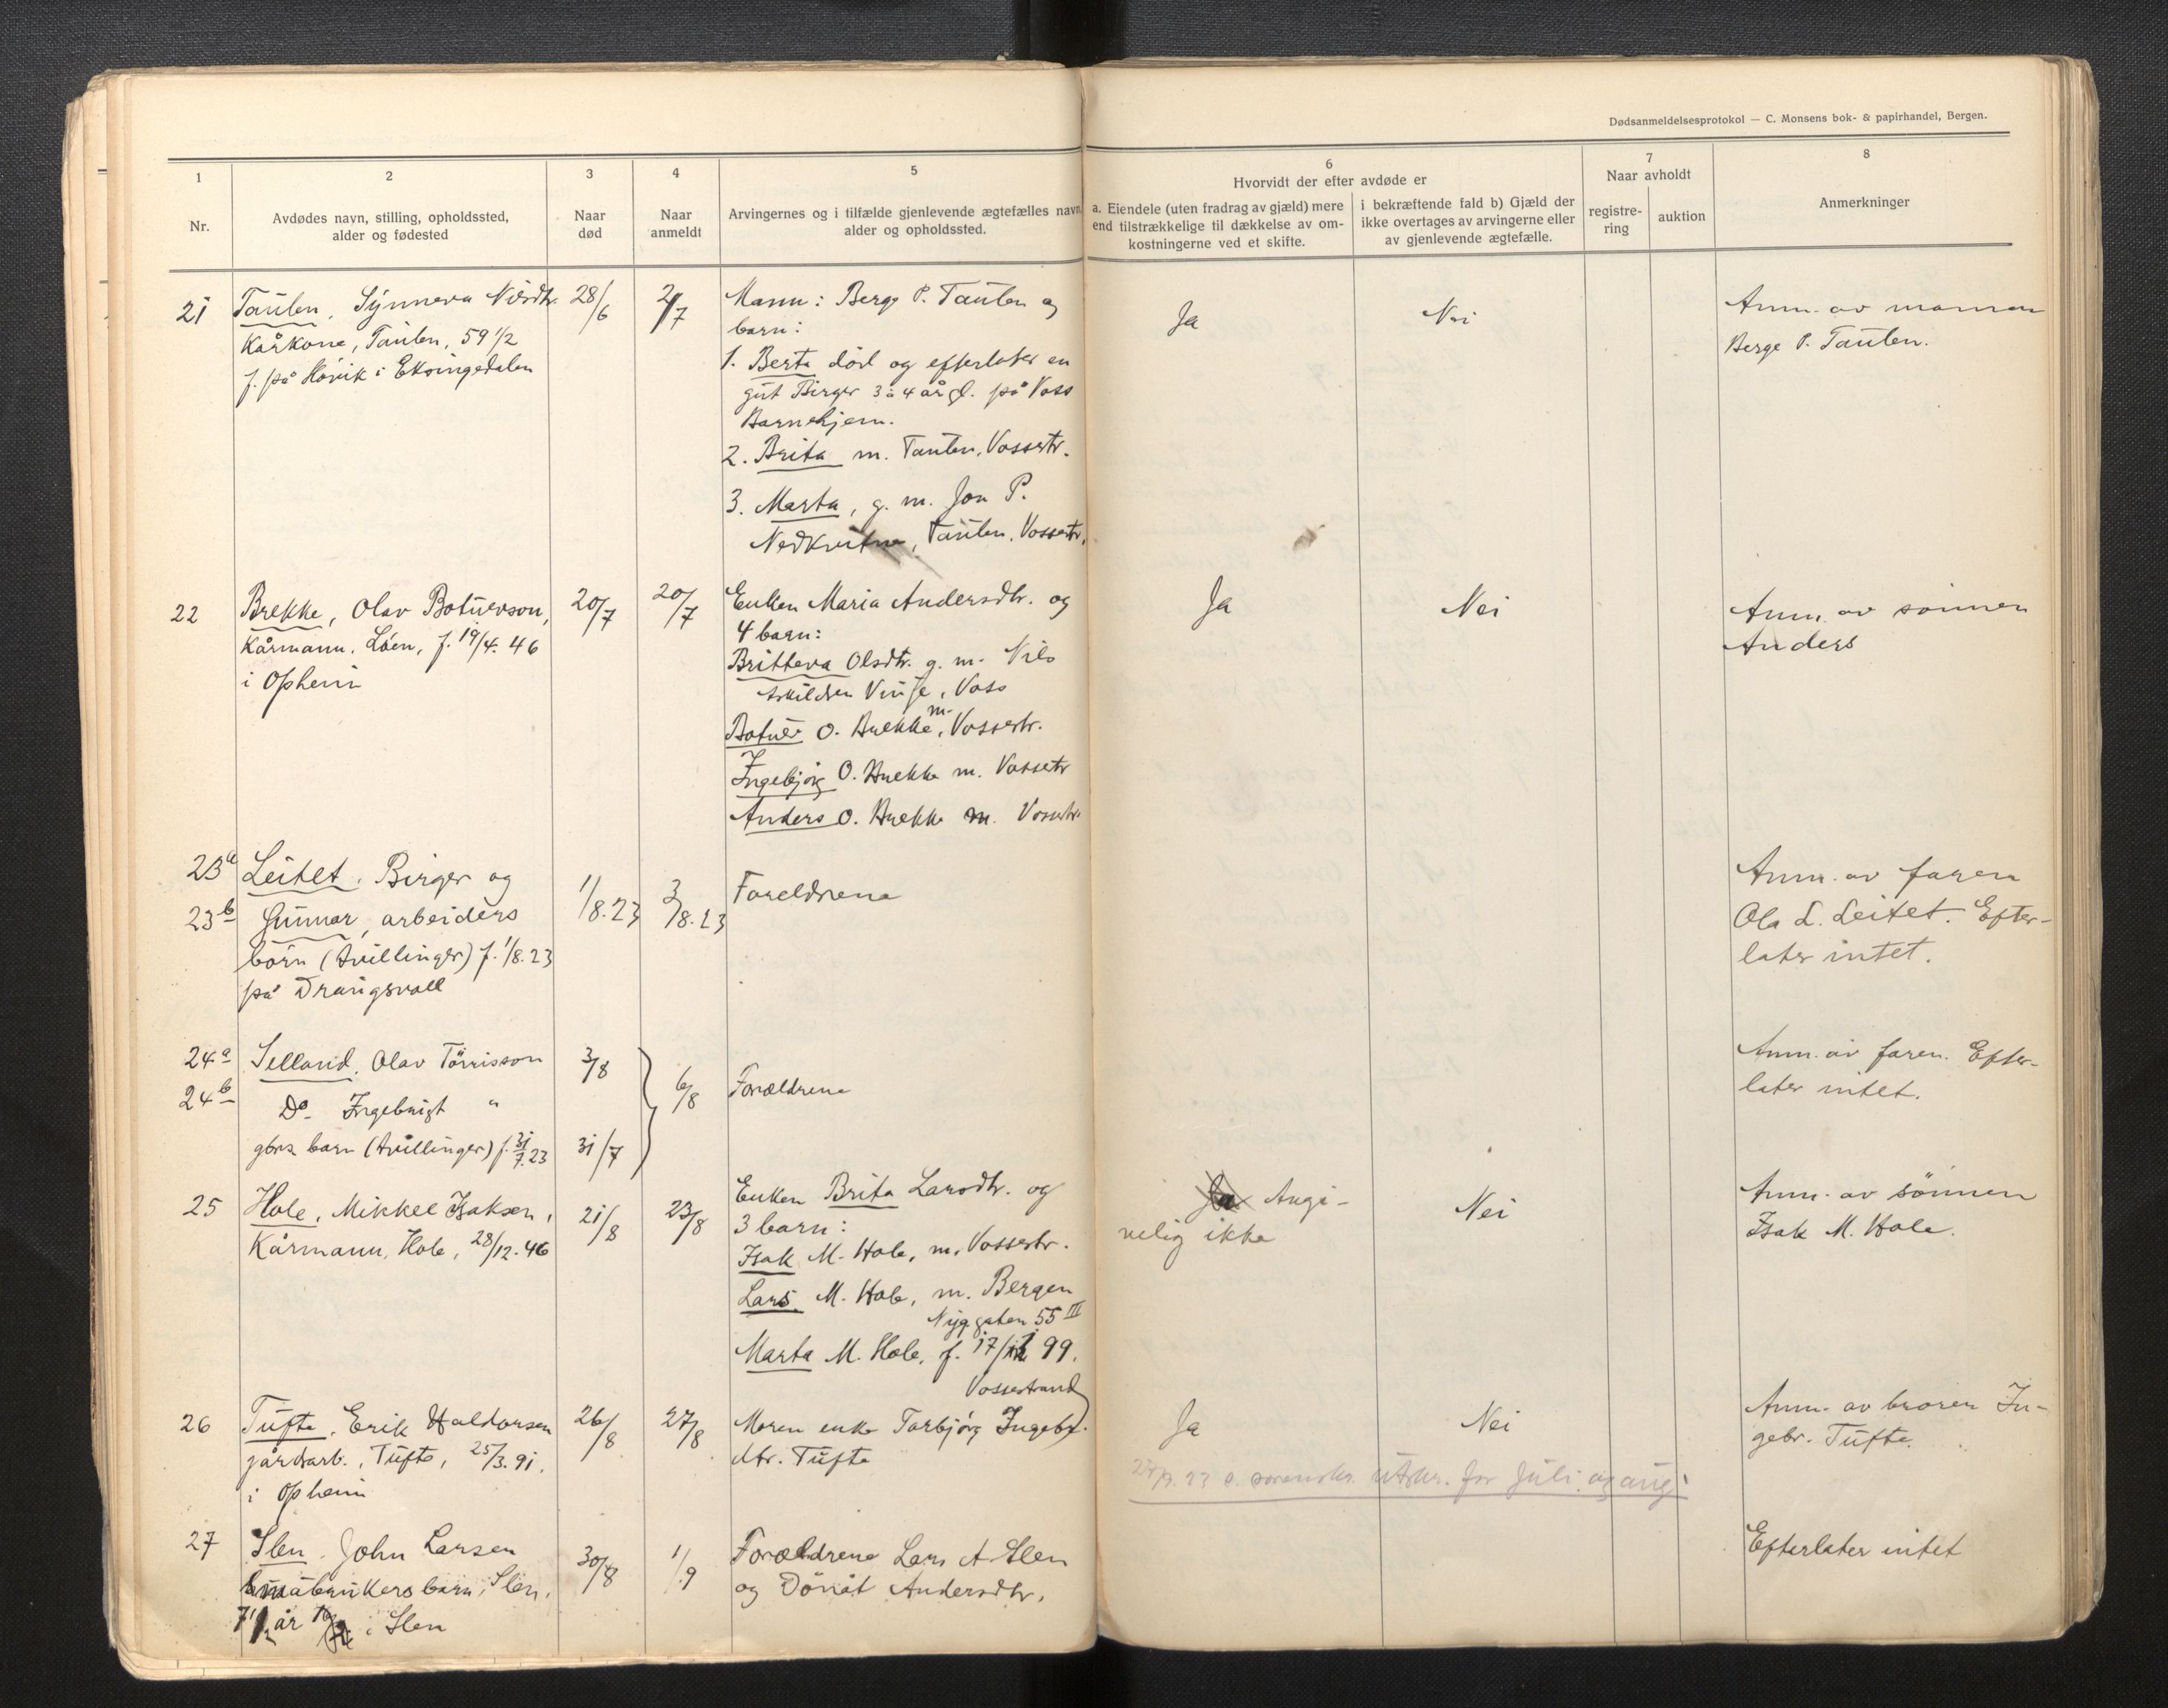 Dødsanmeldelsesprotokol — C. Monsens bok- & papirhandel, Bergen.
1
Nr.
2
Avdødes navn, stilling, opholdssted,
alder og fødested
3
Naar
død
4
Naar
anmeldt
5
Arvingernes og i tilfælde gjenlevende ægtefælles navn
alder og opholdssted.
6
Hvorvidt der efter avdøde er
a. Eiendele (uten fradrag av gjæld) mere
end tilstrækkelige til dækkelse av om-
kostningerne ved et skifte.
i bekræftende fald b) Gjæld der
ikke overtages av arvingerne eller
av gjenlevende ægtefælle.
7
Naar avholdt
registre-
ring
auktion
8
Anmerkninger
21
Taulen, Synneva Nilsdtr.
Kårkone, Taulen, 59 1/2
f. på Høvik i Eksingedalen
28/6
2/7
Mann: Berge P. Taulen og
barn:
1. Berta død og efterlater en
gut Birger 3 à 4 år gl. på Voss
Barnehjem.
2. Brita m. Taulen, Vossestr.
3. Marta, g. m. Jon P.
Nedkvitne, Taulen, Vossestr.
Ja
Nei
Anm. av mannen
Berge P. Taulen.
22
Brekke, Olav Botnevson,
Kårmann, Løen, f. 19/4. 46
i Opheim
20/7
20/7
Enken Maria Andersdtr. og
4 barn:
Britteva Olsdtr. g. m. Nils
Askildsen Vinje, Voss
Botner O. Brekke m., Vossestr.
Ingebjørg O. Brekke m. Vossestr
Anders O. Brekke m. Vossestr.
Ja
Nei
Anm. av sønnen
Anders
23a
23b
Leitet, Birger og
Gunnar, arbeiders
børn (tvillinger) f. 1/8.23
på Drangsvoll
1/8.23
3/8.23
Foreldrene
Anm. av faren
Ola L. Leitet. Efter-
later intet.
24a
24b
Selland, Olav Tørrisson
Do Ingebrigt "
gbrs barn (tvillinger) f. 31/7.23
3/8
31/7
6/8
Forældrene
Anm. av faren. Efter-
later intet.
25
Hole, Mikkel Isaksen,
Kårmann, Hole, 28/12.46
21/8
23/8
Enken Brita Larsdtr. og
3 barn:
Isak M. Hole, m. Vossestr.
Lars M. Hole, m. Bergen
Nyg.gaten 55 III
Marta M. Hole, f. 17/ 99.
Vossestrand
Ja Angi-
velig ikke
Nei
Anm. av sønnen
Isak M. Hole.
26
Tufte, Erik Haldorsen
gårdsarb., Tufte, 25/3.91.
i Opheim
26/8
27/8
Moren enke Torbjørg Ingebr.
dtr. Tufte
Ja
Nei
Anm. av broren In-
gebr. Tufte.
utskr. for juli og aug.
27
Slen, John Larsen
småbrukers barn, Slen,
år i Slen
30/8
1/9
Forældrene Lars A. Slen
og Dønåt Andersdtr.
Efterlater intet